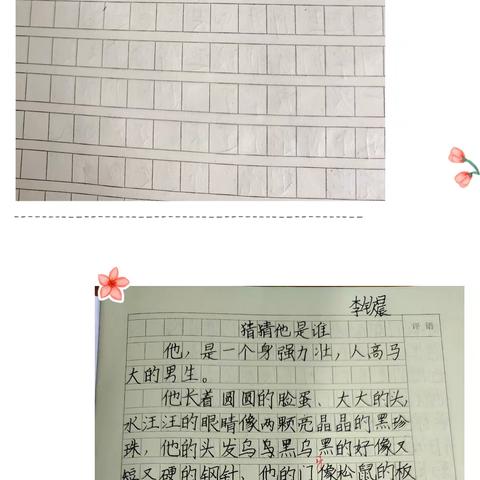 猜猜他是谁
评语
他，是一个身强力壮，人高马
大的男生。
他长着圆圆的脸蛋、大大的头，
水汪汪的眼睛像两颗亮晶晶的黑珍
珠，他的头发乌乌黑乌黑的好像又
短又硬的钢针，他的门像松鼠的板